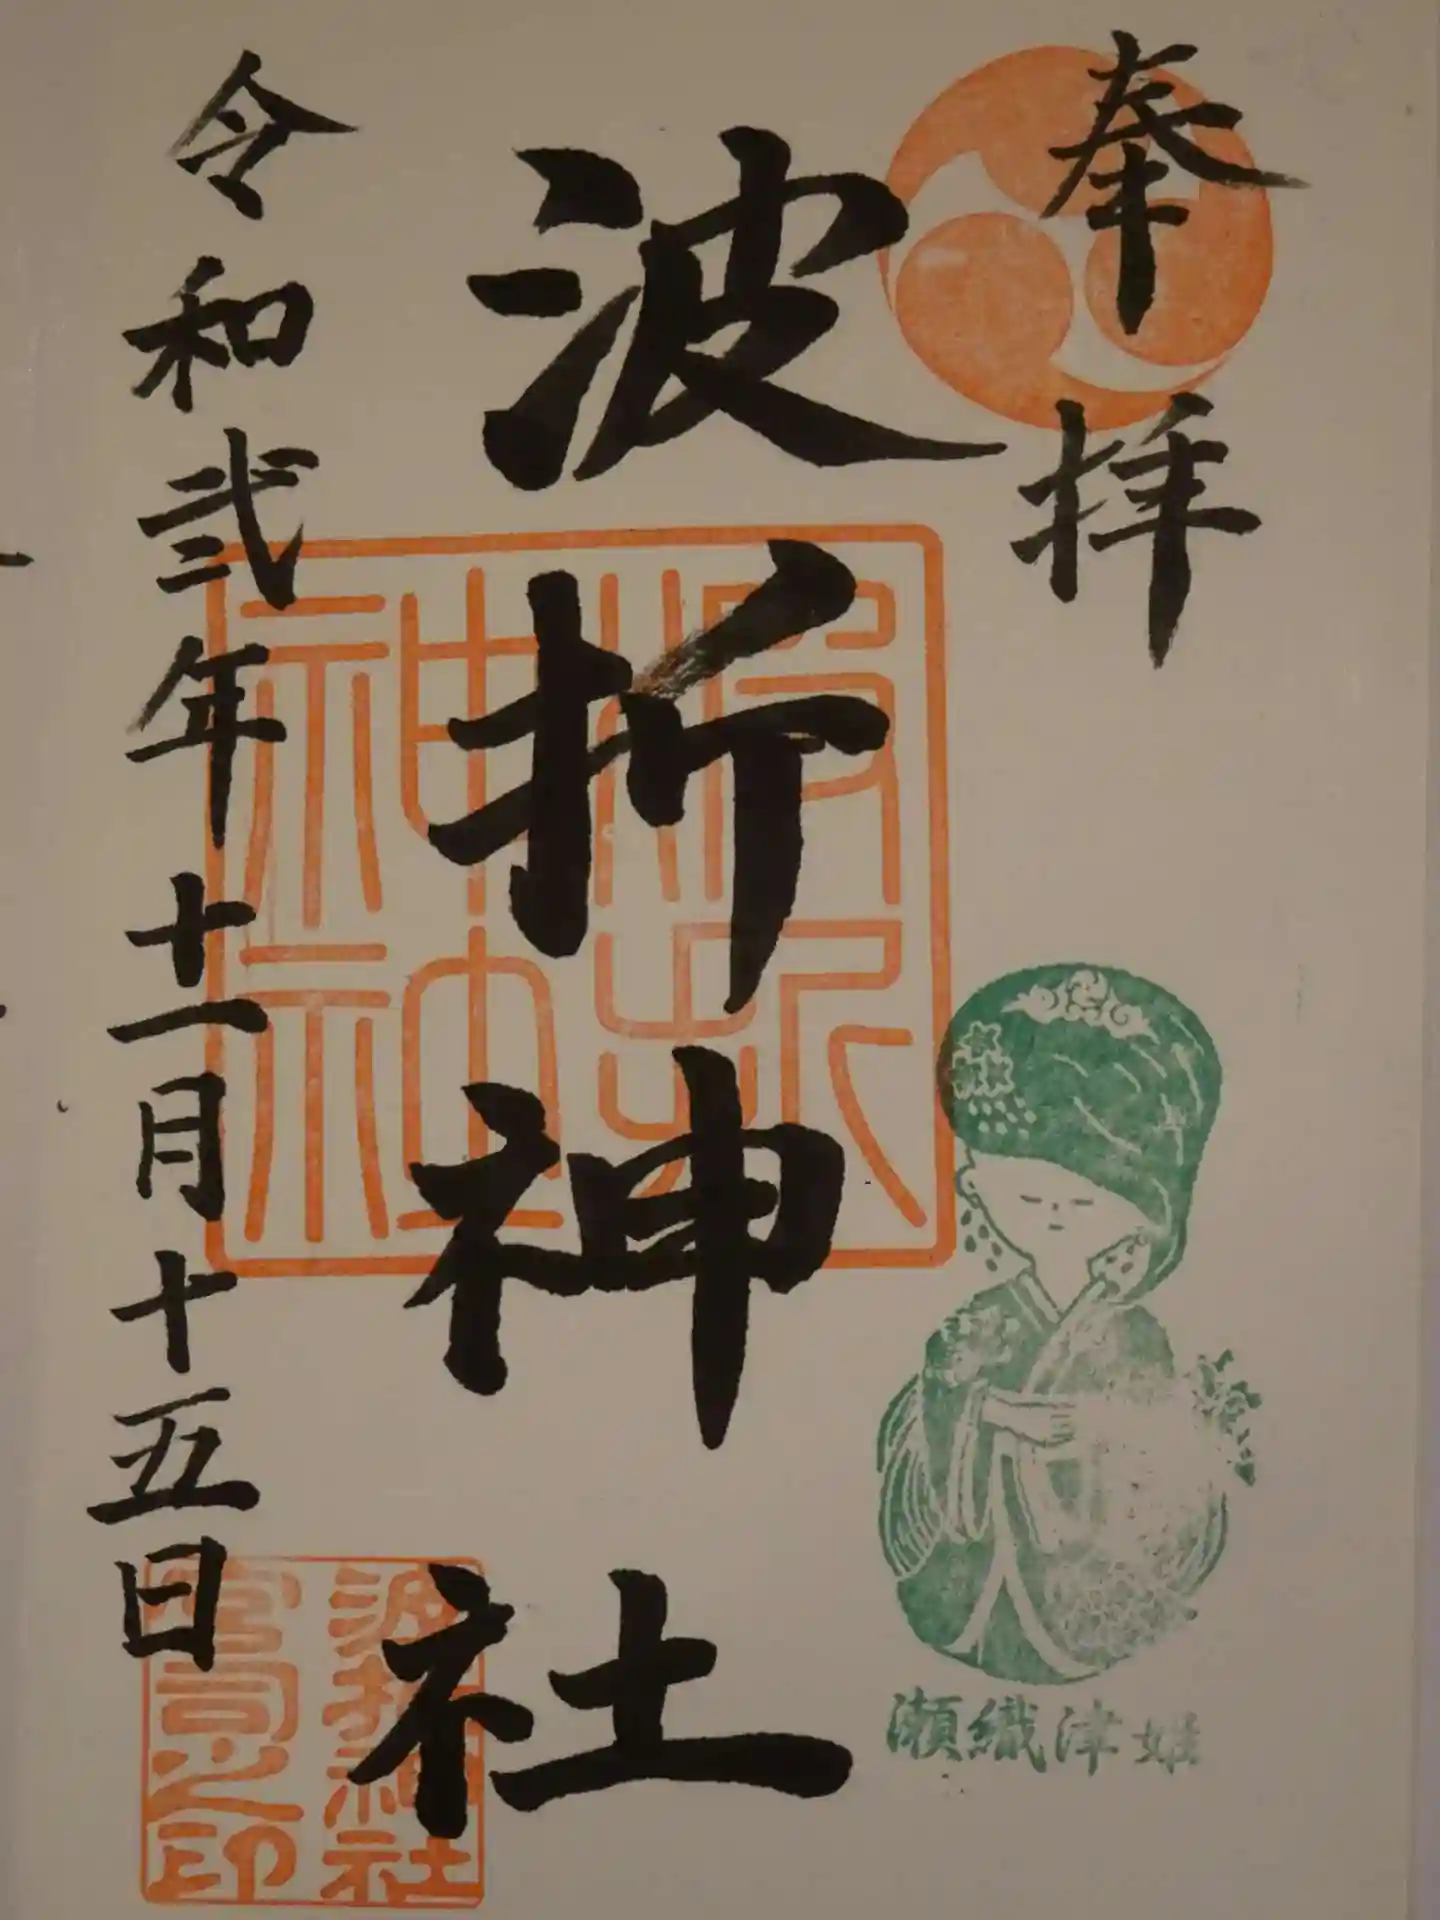 奉拝
波折神社
令和弐年十一月十五日
波折神社
波折神社
宮司之印
瀬織津姫